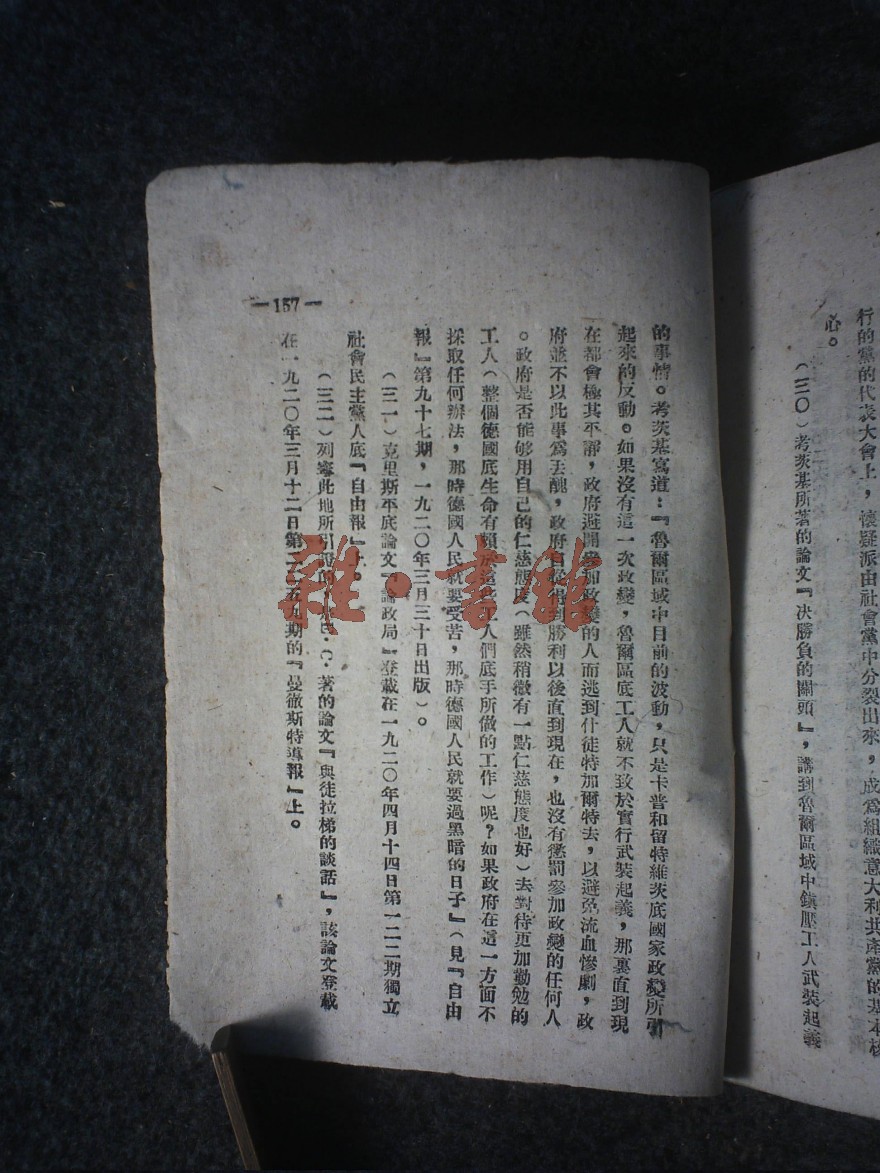 行的黨的代表大會上，懷疑派由社會黨中分裂出來，成爲組織意大利共產黨的基本核
心。
（三〇）考茨基所著的論文『決勝負的關頭』，講到魯爾區域中鎮壓工人武裝起義
的事情。考茨基寫道：『魯爾區域中目前的波動，只是卡普和留特維茨底國家政變所引
起來的反動。如果沒有這一次政變，魯爾區底工人就不致於實行武裝起義，那裏直到現
在都會極其平靜，政府避開參加政變的人而逃到什徒特加爾特去，以避免流血慘劇，政
府並不以此事爲丟醜，政府自從得到勝利以後直到現在，也沒有懲罰參加政變的任何人
。政府是否能够用自己的仁慈態度（雖然稍微有一點仁慈態度也好）去對待更加勤勉的
工人（整個德國底生命有賴於這些工人們底手所做的工作）呢？如果政府在這一方面不
採取任何辦法，那時德國人民就要受苦，那時德國人民就要過黑暗的日子』（見『自由
報』第九十七期，一九二〇年三月三十日出版）。
（三一）克里斯平底論文『論政局』登載在一九二〇年四月十四日第一二二期獨立
社會民主黨人底『自由報』上。
（三二）列寧此地所引證的　著的論文『與徒拉梯的談話』，該論文登載
在一九二〇年三月十二日第　五九期的『曼徹斯特導報』上。
—157—
雜·書館